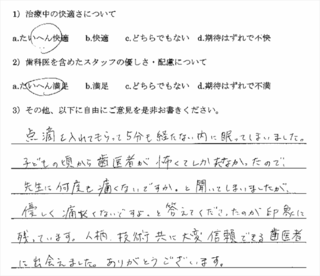 1）治療中の快適さについて
a.たいへん快適 b.快適 c.どちらでもない d.期待はずれで不快
2）歯科医を含めたスタッフの優しさ・配慮について
a.たいへん満足 b.満足 c.どちらでもない d.期待はずれで不満
3）その他、以下に自由にご意見を是非お書きください。
点滴を入れてもらって5分も経たない内に眠ってしまいました。
子どもの頃から歯医者が怖くてしかたなかったので、
先生に何度も痛くないですか。と聞いてしまいましたが、
優しく痛くないですよ。と答えてくださったのが印象に
残っています。人柄、技術共に大変信頼できる歯医者
に出会えました。ありがとうございます。